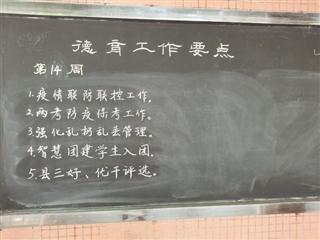 德育工作要点
第14周
1.疫情联防联控工作。
2.两考防疫保考工作。
3.强化乱扔乱丢管理。
4.智慧团建学生入团。
5.县三好、优干评选。